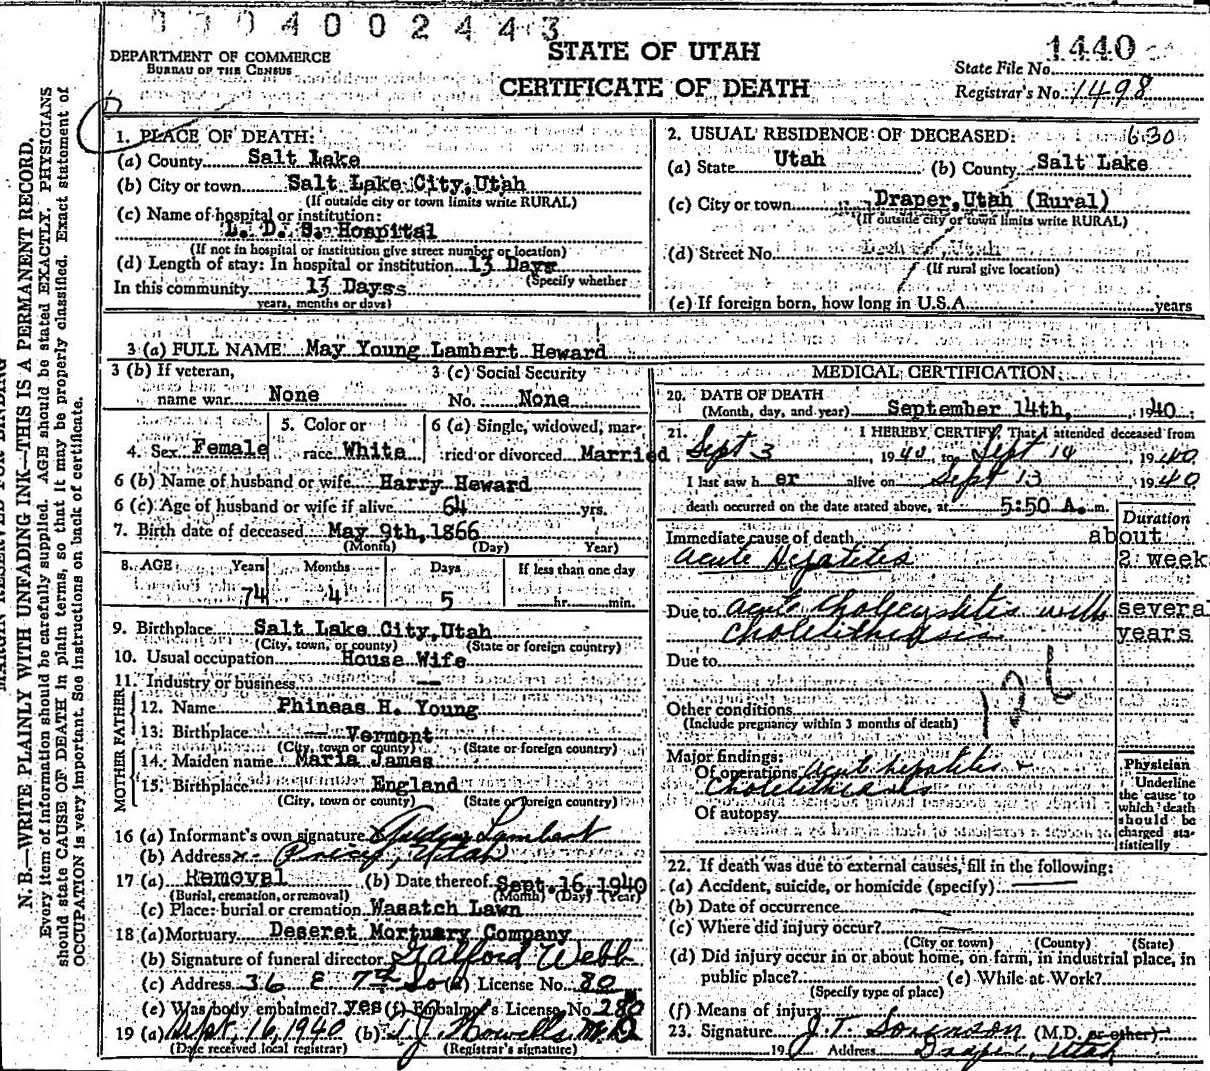 4002443
DEPARTMENT OF COMMERCE
BUREAU OF THE CENSUS
STATE OF UTAH
CERTIFICATE OF DEATH
1440
State File No.
Registrar's No. 1498
1. PLACE OF DEATH:
(a) County Salt Lake
(b) City or town Salt Lake City, Utah
(If outside city or town limits write RURAL)
(c) Name of hospital or institution:
L. D. S. Hospital
(If not in hospital or institution give street number or location)
(d) Length of stay: In hospital or institution 13 Days
(Specify whether
In this community 13 Dayss
years, months or days)
2. USUAL RESIDENCE OF DECEASED: 630
(a) State Utah (b) County Salt Lake
(c) City or town Draper, Utah (Rural)
(If outside city or town limits write RURAL)
(d) Street No.
(If rural give location)
(e) If foreign born, how long in U.S.A. years
3 (a) FULL NAME: May Young Lambert Heward
3 (b) If veteran,
name war None
3 (c) Social Security
No. None
4. Sex Female
5. Color or
race White
6 (a) Single, widowed, mar-
ried or divorced Married
6 (b) Name of husband or wife Harry Heward
6 (c) Age of husband or wife if alive 64 yrs.
7. Birth date of deceased May 9th, 1866
(Month) (Day) Year)
8. AGE Years Months Days If less than one day
74 4 5 hr. min.
9. Birthplace Salt Lake City, Utah
(City, town, or county) (State or foreign country)
10. Usual occupation House Wife
11. Industry or business —
FATHER
12. Name Phineas H. Young
13. Birthplace Vermont
(City, town or county) (State or foreign country)
MOTHER
14. Maiden name Maria James
15. Birthplace England
(City, town or county) (State or foreign country)
16 (a) Informant's own signature Lambert
(b) Address Price, Utah
17 (a) Removal (b) Date thereof Sept. 16, 1940
(Burial, cremation, or removal) (Month) (Day) (Year)
(c) Place: burial or cremation Wasatch Lawn
18 (a) Mortuary Deseret Mortuary Company
(b) Signature of funeral director Galford Webb
(c) Address 36 E 7th So (d) License No. 80
(e) Was body embalmed? yes (f) Embalmer's License No. 280
19 (a) Sept. 16, 1940 (b) Howells M.D.
(Date received local registrar) (Registrar's signature)
MEDICAL CERTIFICATION
20. DATE OF DEATH
(Month, day, and year) September 14th, 1940
21. I HEREBY CERTIFY, That I attended deceased from
Sept 3 1940 to Sept 14 1940
I last saw her alive on Sept 13 1940
death occurred on the date stated above, at 5:50 A. m.
Duration
Immediate cause of death about
acute Hepatites 2 week
Due to acute cholecystitis with severa
cholelithiasis years
Due to
126
Other conditions
(Include pregnancy within 3 months of death)
Major findings:
Of operations acute hepatites +
cholelithiasis
Of autopsy
Physician
Underline
the cause to
which death
should be
charged sta-
tistically
22. If death was due to external causes, fill in the following:
(a) Accident, suicide, or homicide (specify)
(b) Date of occurrence
(c) Where did injury occur?
(City or town) (County) (State)
(d) Did injury occur in or about home, on farm, in industrial place, in
public place? (e) While at Work?
(Specify type of place)
(f) Means of injury
23. Signature J. T. Sorenson (M.D. or other)
19 Address Draper, Utah
N. B.—WRITE PLAINLY WITH UNFADING INK—THIS IS A PERMANENT RECORD.
Every item of information should be carefully supplied. AGE should be stated EXACTLY. PHYSICIANS
should state CAUSE OF DEATH in plain terms, so that it may be properly classified. Exact statement of
OCCUPATION is very important. See instructions on back of certificate.
MARGIN RESERVED FOR BINDING